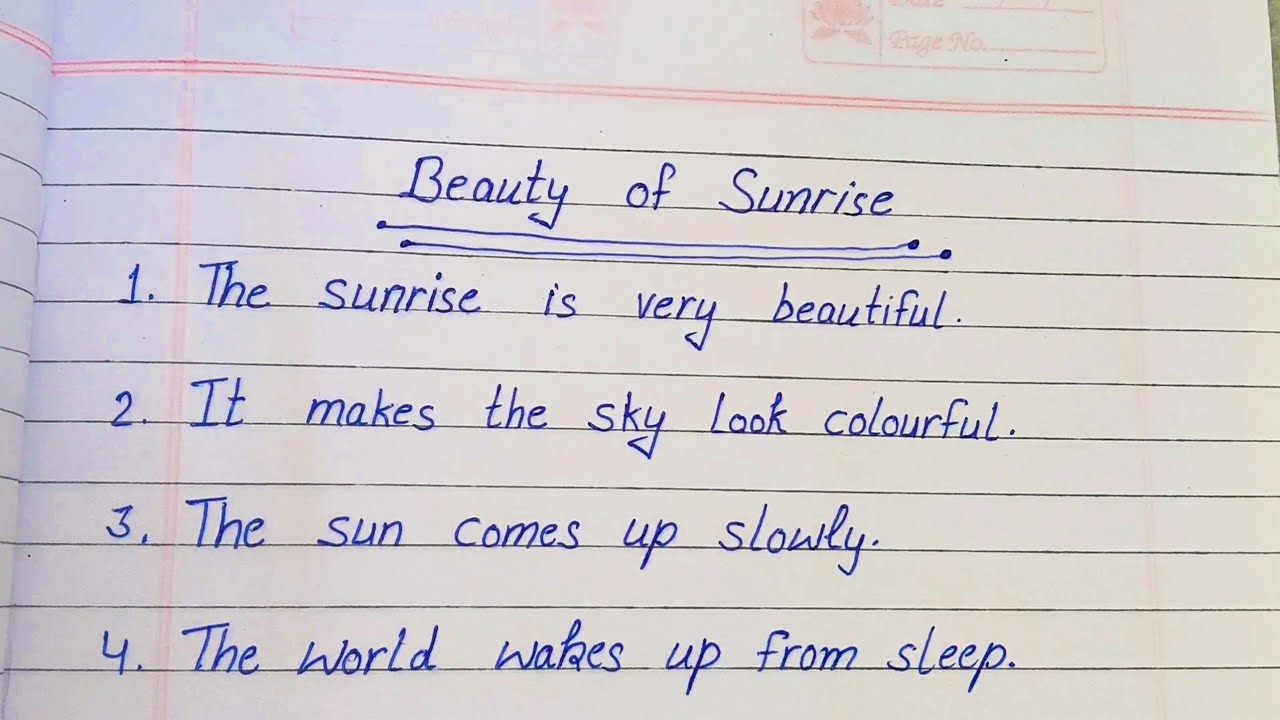 Date
Page No.
Beauty of Sunrise
1. The sunrise is very beautiful.
2. It makes the sky look colourful.
3. The sun comes up slowly.
4. The world wakes up from sleep.